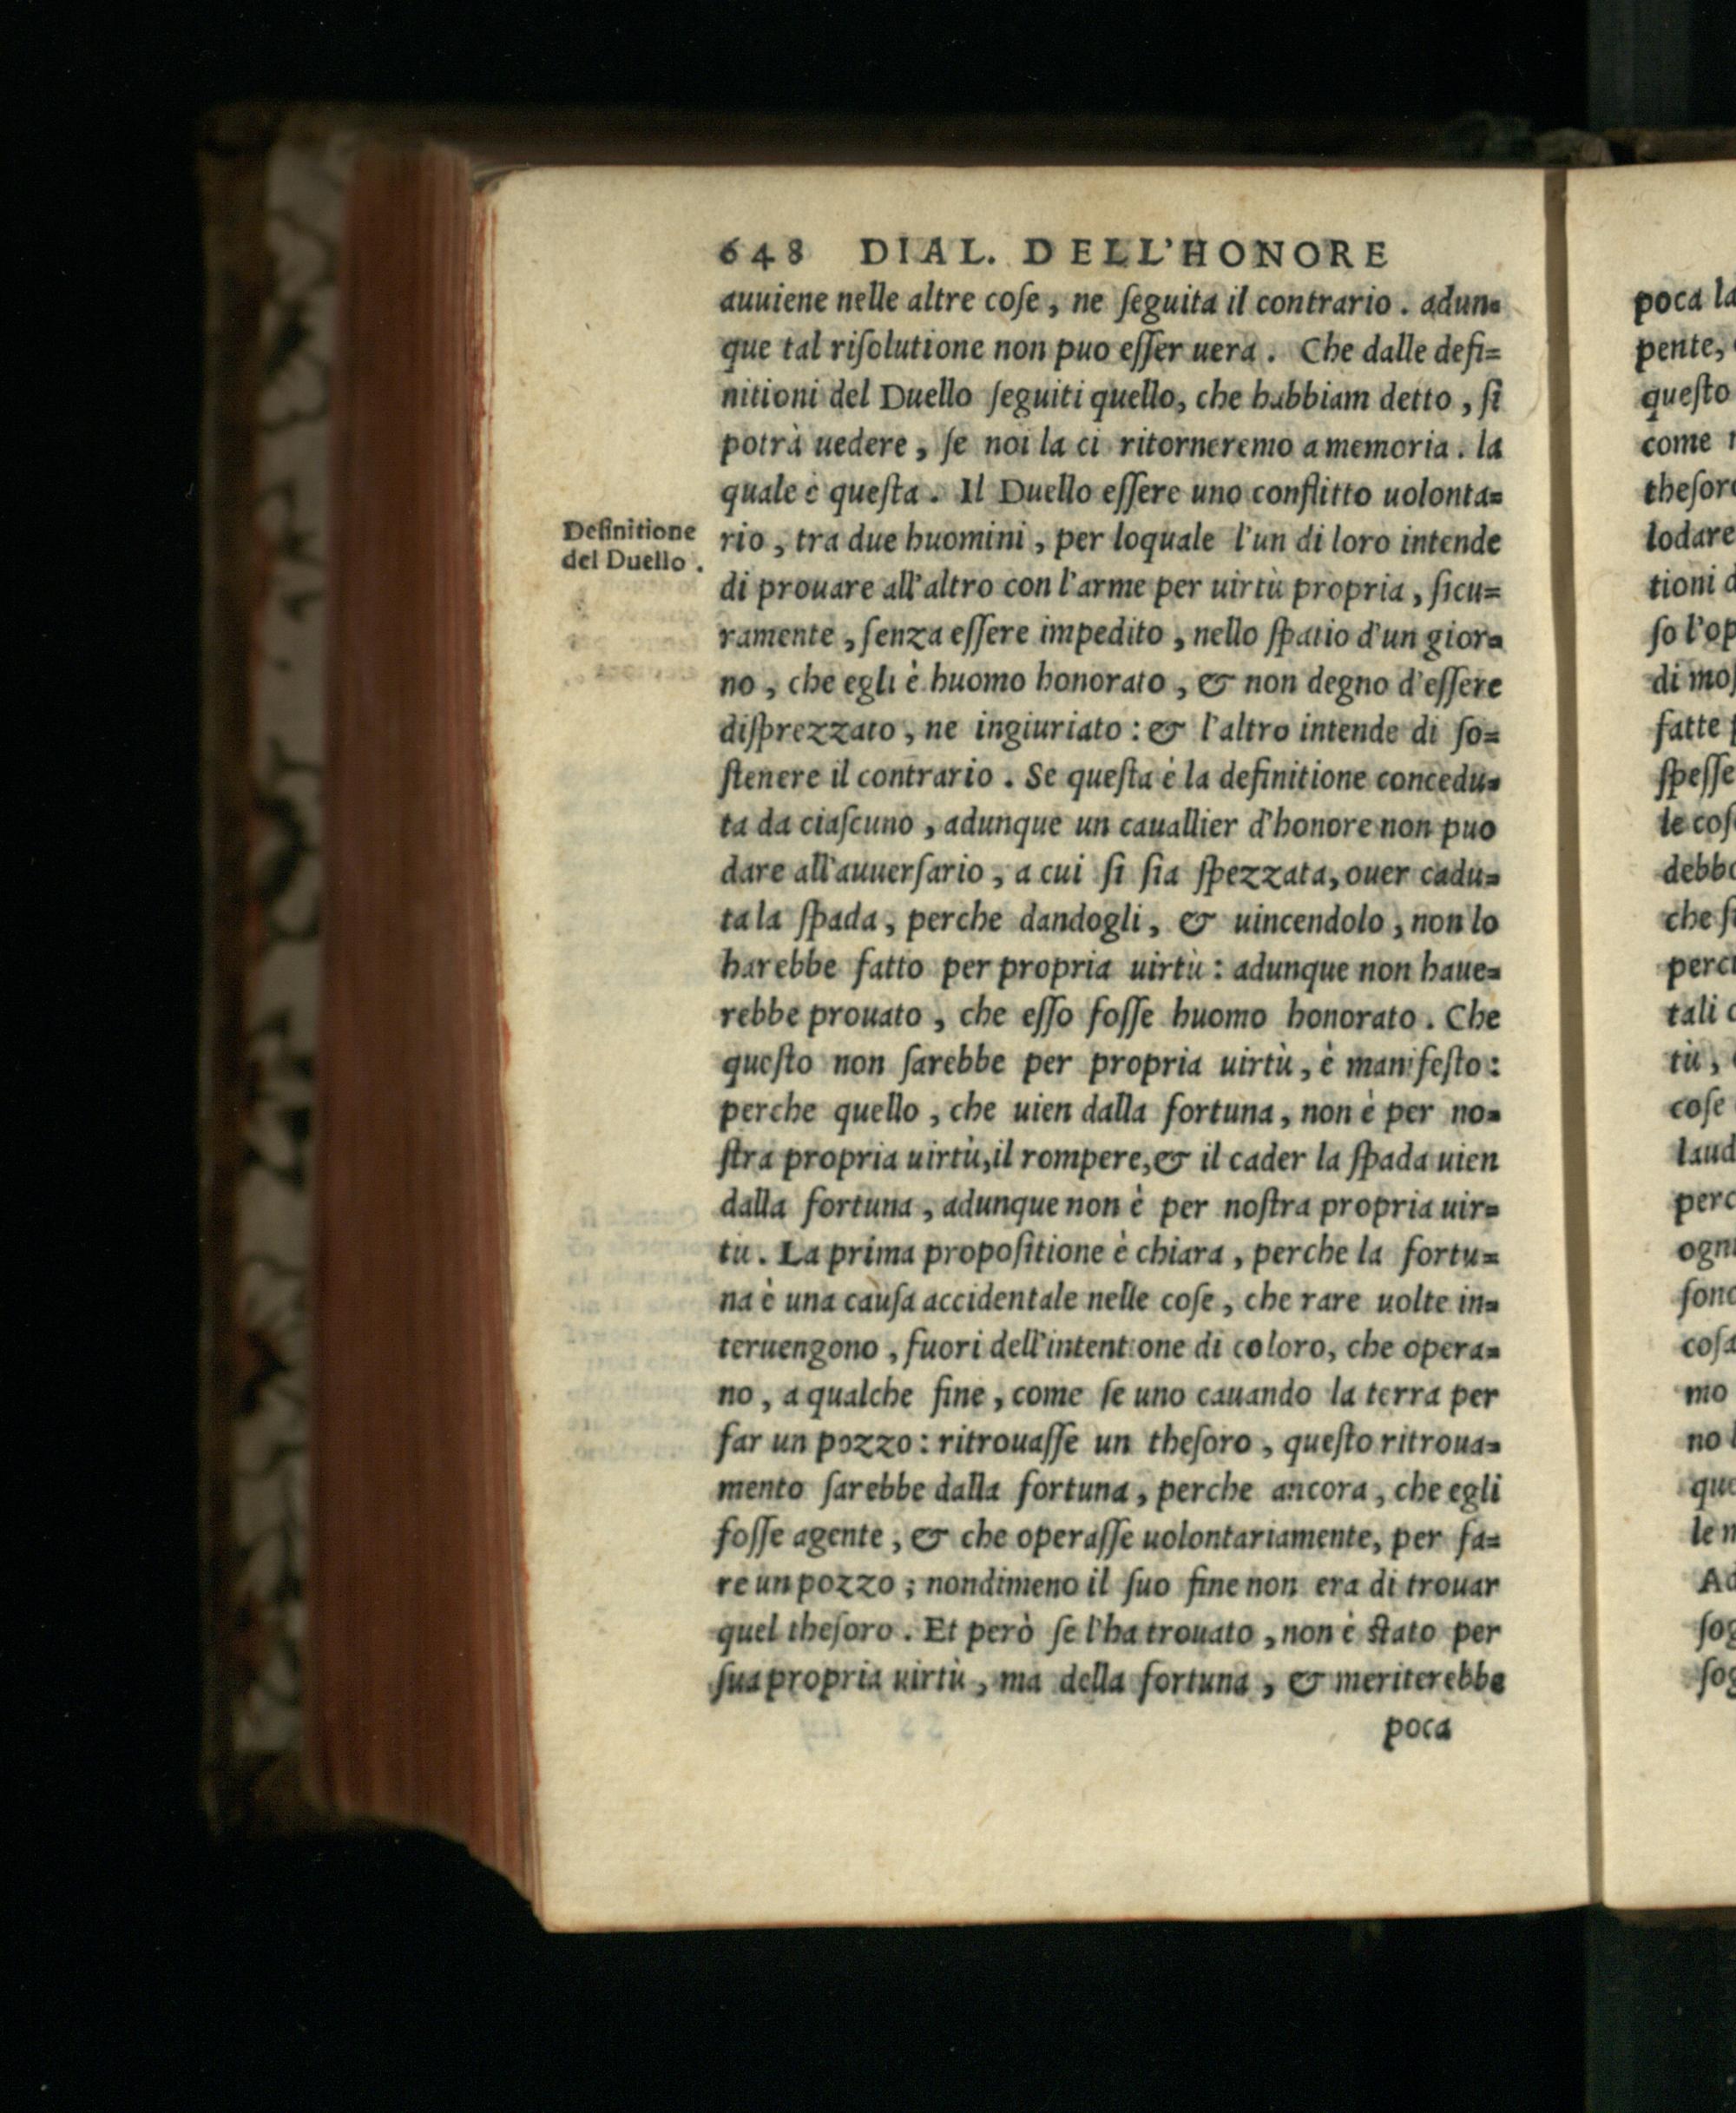 648 DIAL. DELL'HONORE
auuiene nelle altre coſe, ne ſeguita il contrario. adun=
que tal riſolutione non puo eſſer uera. Che dalle defi=
nitioni del Duello ſeguiti quello, che habbiam detto, ſi
potrà uedere, ſe noi la ci ritorneremo a memoria. la
quale è queſta. Il Duello eſſere uno conflitto uolonta=
Definitione
del Duello.
rio, tra due huomini, per loquale l'un di loro intende
di prouare all'altro con l'arme per uirtù propria, ſicu=
ramente, ſenza eſſere impedito, nello ſpatio d'un gior=
no, che egli è huomo honorato, & non degno d'eſſere
diſprezzato, ne ingiuriato: & l'altro intende di ſo=
ſtenere il contrario. Se queſta è la definitione concedu=
ta da ciaſcuno, adunque un cauallier d'honore non puo
dare all'auuerſario, a cui ſi ſia ſpezzata, ouer cadu=
ta la ſpada, perche dandogli, & uincendolo, non lo
harebbe fatto per propria uirtù: adunque non haue=
rebbe prouato, che eſſo foſſe huomo honorato. Che
queſto non ſarebbe per propria uirtù, è manifeſto:
perche quello, che uien dalla fortuna, non è per no=
ſtra propria uirtù, il rompere, & il cader la ſpada uien
dalla fortuna, adunque non è per noſtra propria uir=
tu. La prima propoſitione è chiara, perche la fortu=
na è una cauſa accidentale nelle coſe, che rare uolte in=
teruengono, fuori dell'intentione di coloro, che opera=
no, a qualche fine, come ſe uno cauando la terra per
far un pozzo: ritrouaſſe un theſoro, queſto ritroua=
mento ſarebbe dalla fortuna, perche ancora, che egli
foſſe agente, & che operaſſe uolontariamente, per fa=
re un pozzo; nondimeno il ſuo fine non era di trouar
quel theſoro. Et però ſe l'ha trouato, non è ſtato per
ſua propria uirtù, ma della fortuna, & meriterebbe
poca
poca la
pente,
queſto
come
lodare
tioni
di
fatte
le
perc
tali
tù,
coſe